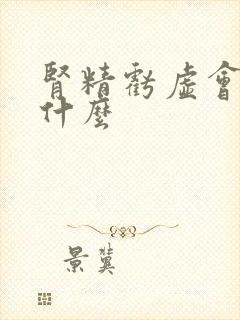 腎精虧虛會
什麼
景冀